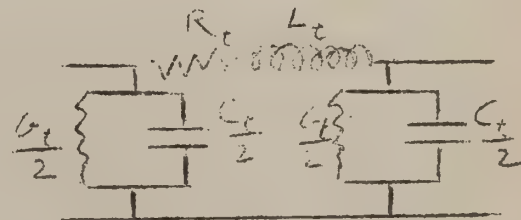 R_t L_t
G_t/2 C_t/2 G_t/2 C_t/2